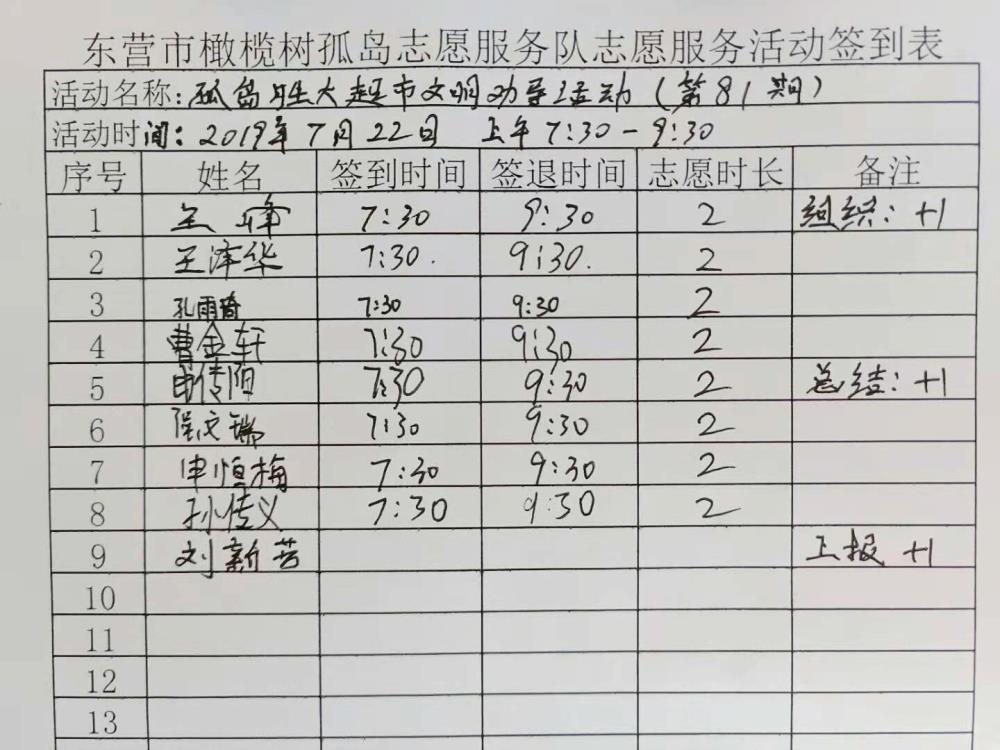 东营市橄榄树孤岛志愿服务队志愿服务活动签到表
活动名称:孤岛胜大超市文明劝导活动(第81期)
活动时间:2019年7月22日 上午7:30-9:30
序号 姓名 签到时间 签退时间 志愿时长 备注
1 王峰 7:30 9:30 2 组织:+1
2 王泽华 7:30. 9:30. 2
3 孔雨琦 7:30 9:30 2
4 曹金轩 7:30 9:30 2
5 申传阳 7:30 9:30 2 总结:+1
6 文瑞 7:30 9:30 2
7 申恒梅 7:30 9:30 2
8 孙传义 7:30 9:30 2
9 刘新芳 上报 +1
10
11
12
13